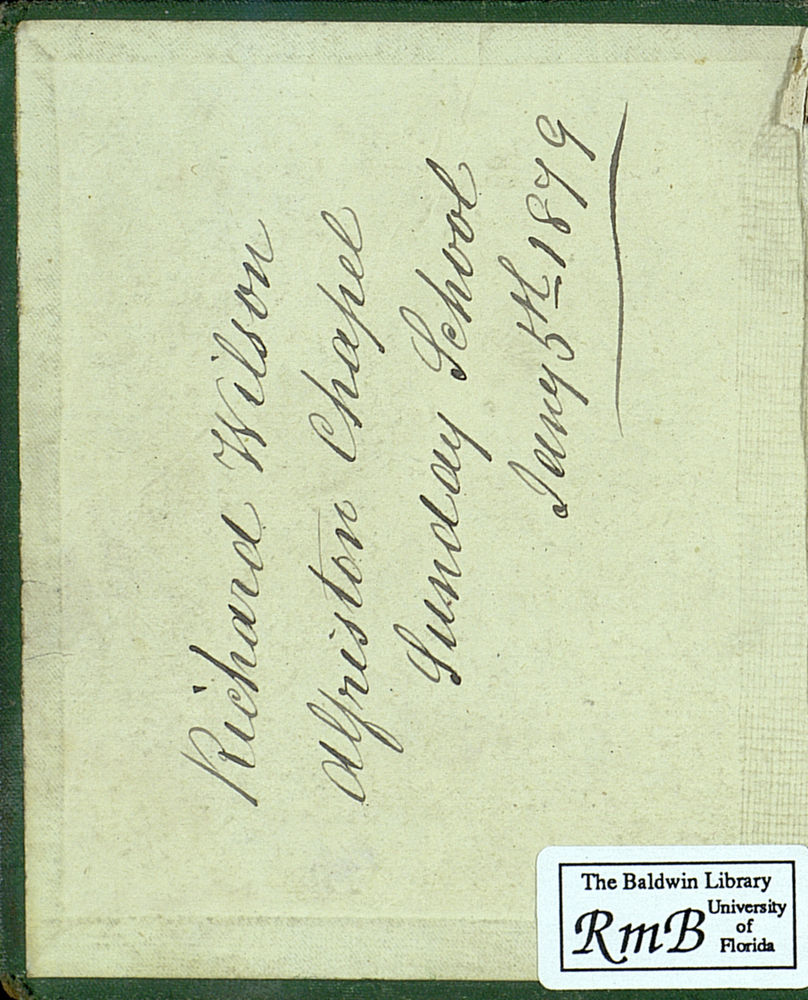 Richard Wilson
Alfriston Chapel
Sunday School
Jany 5th 1879
The Baldwin Library
RmB University
of
Florida